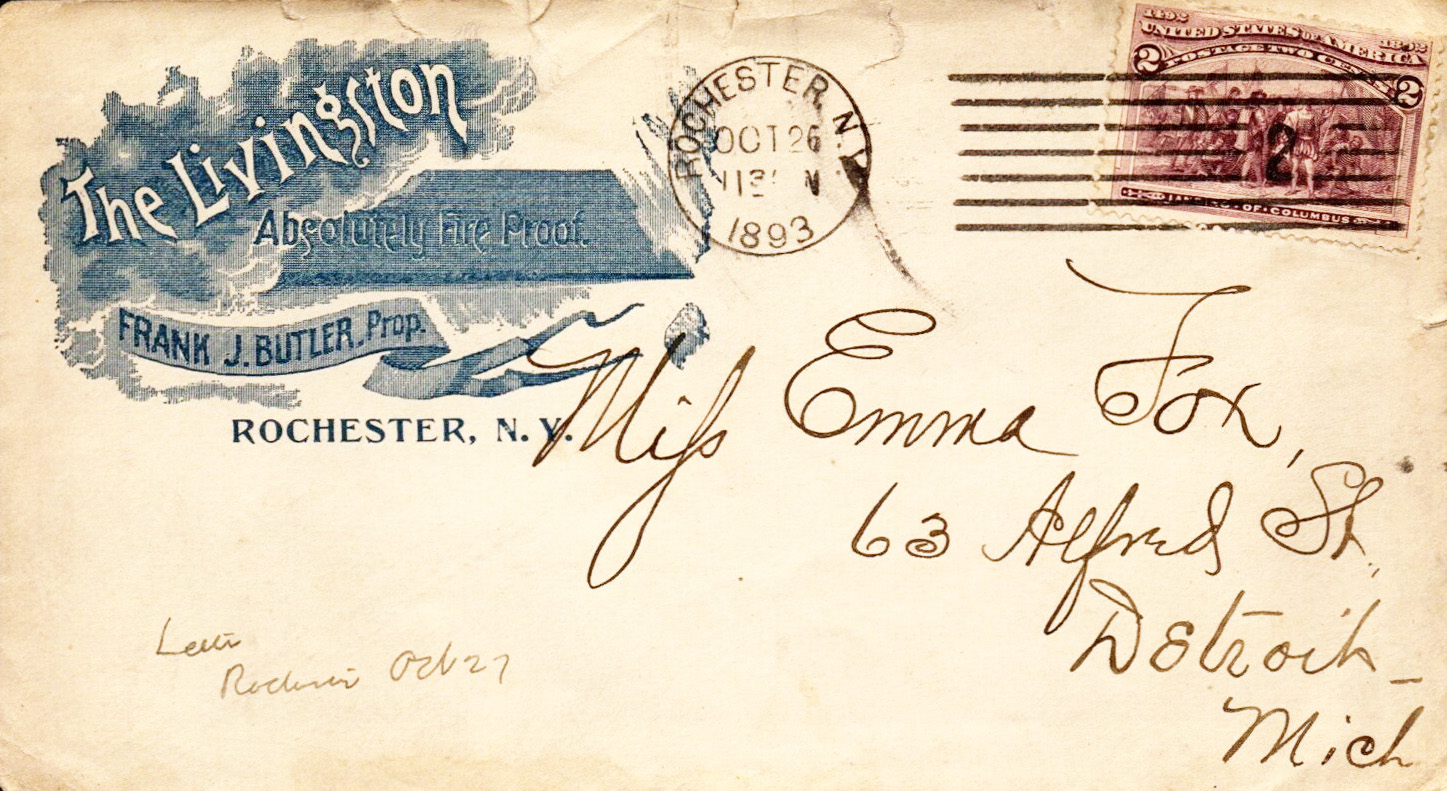 The Livingston
Absolutely Fire Proof.
FRANK J. BUTLER, Prop.
ROCHESTER, N. Y.
ROCHESTER, N.Y.
OCT 26
1893
1492
1892
UNITED STATES OF AMERICA
POSTAGE TWO CENTS
2 2
2
OF COLUMBUS
Miss Emma Fox,
63 Alfred St.,
Detroit
Mich
Oct 27